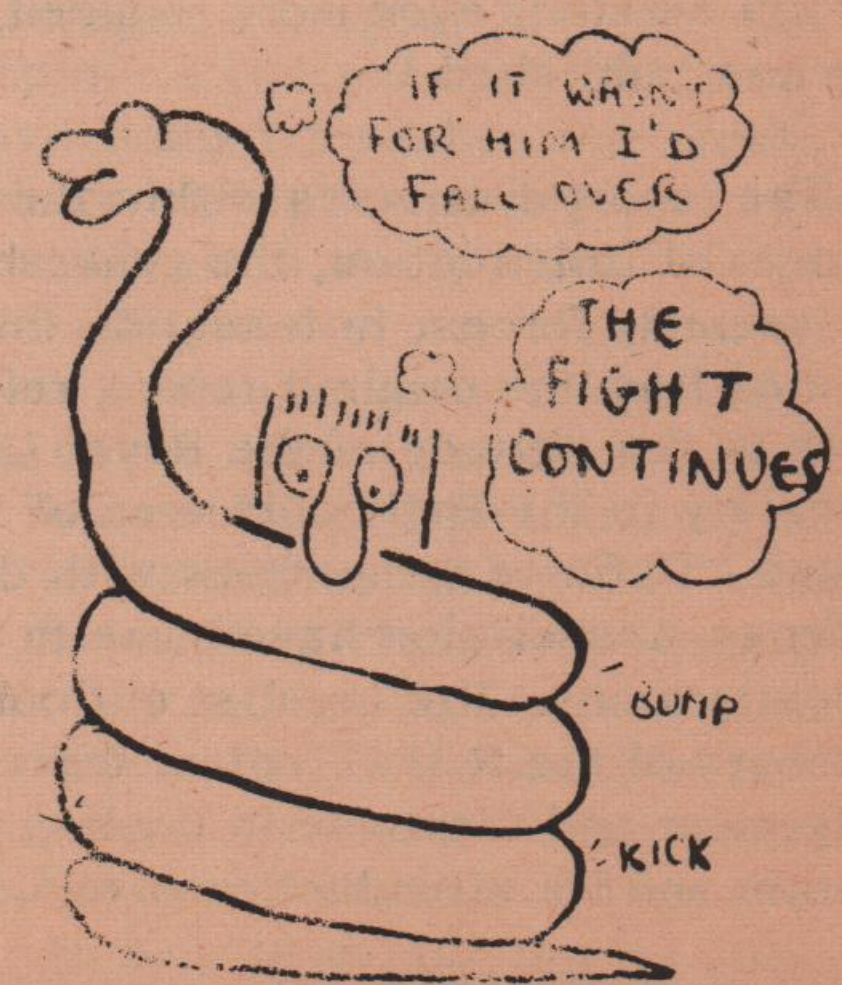 IF IT WASN'T
FOR HIM I'D
FALL OVER
THE
FIGHT
CONTINUES
BUMP
KICK